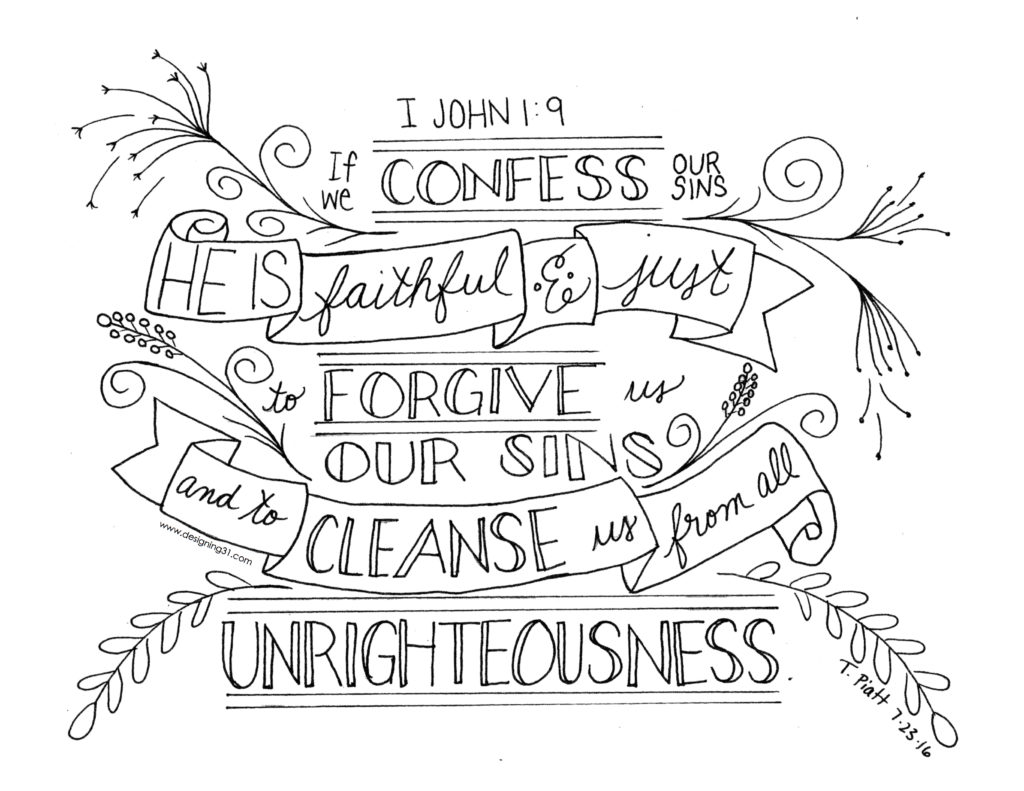 I JOHN 1:9
If we CONFESS OUR SINS
HE IS faithful & just
to FORGIVE us
OUR SINS
and to CLEANSE us from all
www.designing31.com
UNRIGHTEOUSNESS.
T. Piatt 7.23.16